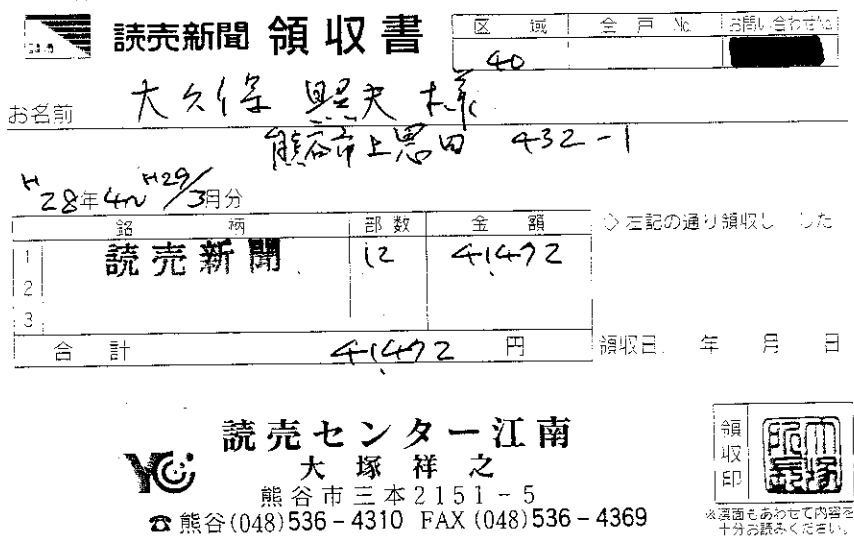 読売新聞 領収書
区域 全戸No. お問い合わせNo.
40
お名前 大久保 照夫 様
熊谷市上恩田 432-1
H28年4~H29/3月分
銘柄 部数 金額
◇左記の通り領収し した
1 読売新聞 12 41,472
2
3
合計 41,472 円
領収日 年 月 日
読売センター江南
YC 大塚祥之
熊谷市三本2151-5
☎熊谷(048)536-4310 FAX(048)536-4369
領収印
※裏面もあわせて内容を
十分お読みください。